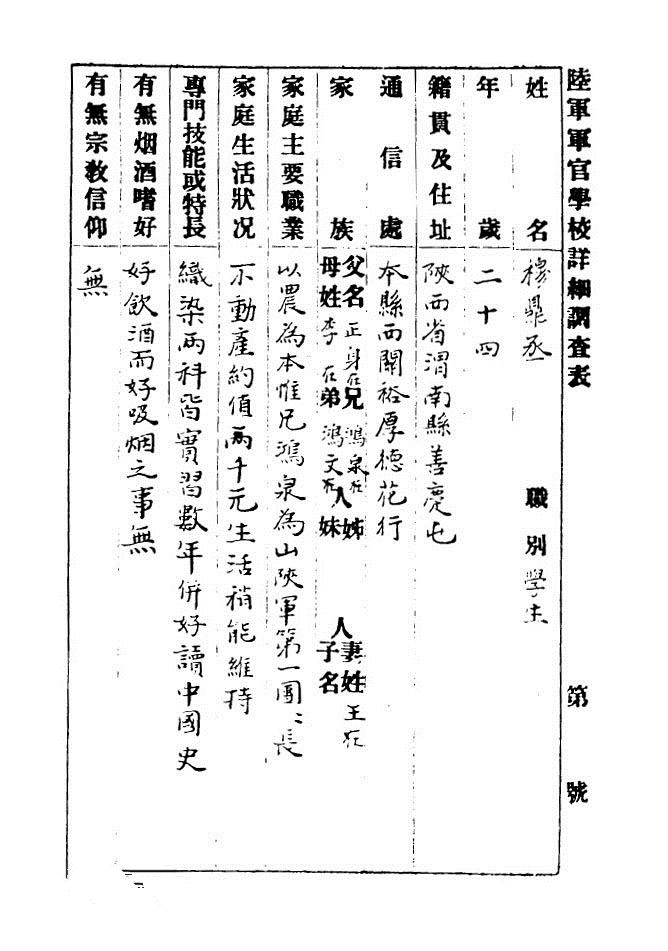 陸軍軍官學校詳細調查表 第 號
姓名 穆鼎丞 職別 學生
年歲 二十四
籍貫及住址 陝西省渭南縣善慶屯
通信處 本縣西關裕厚德花行
家族 父名 正身在 兄 鴻泉在 人 姊 人 妻姓 王在
母姓 李在 弟 鴻文在 妹 子名
家庭主要職業 以農為本惟兄鴻泉為山陝軍第一團〻長
家庭生活狀況 不動產約值兩千元生活稍能維持
專門技能或特長 織染兩科皆實習數年併好讀中國史
有無烟酒嗜好 好飲酒而好吸烟之事無
有無宗教信仰 無